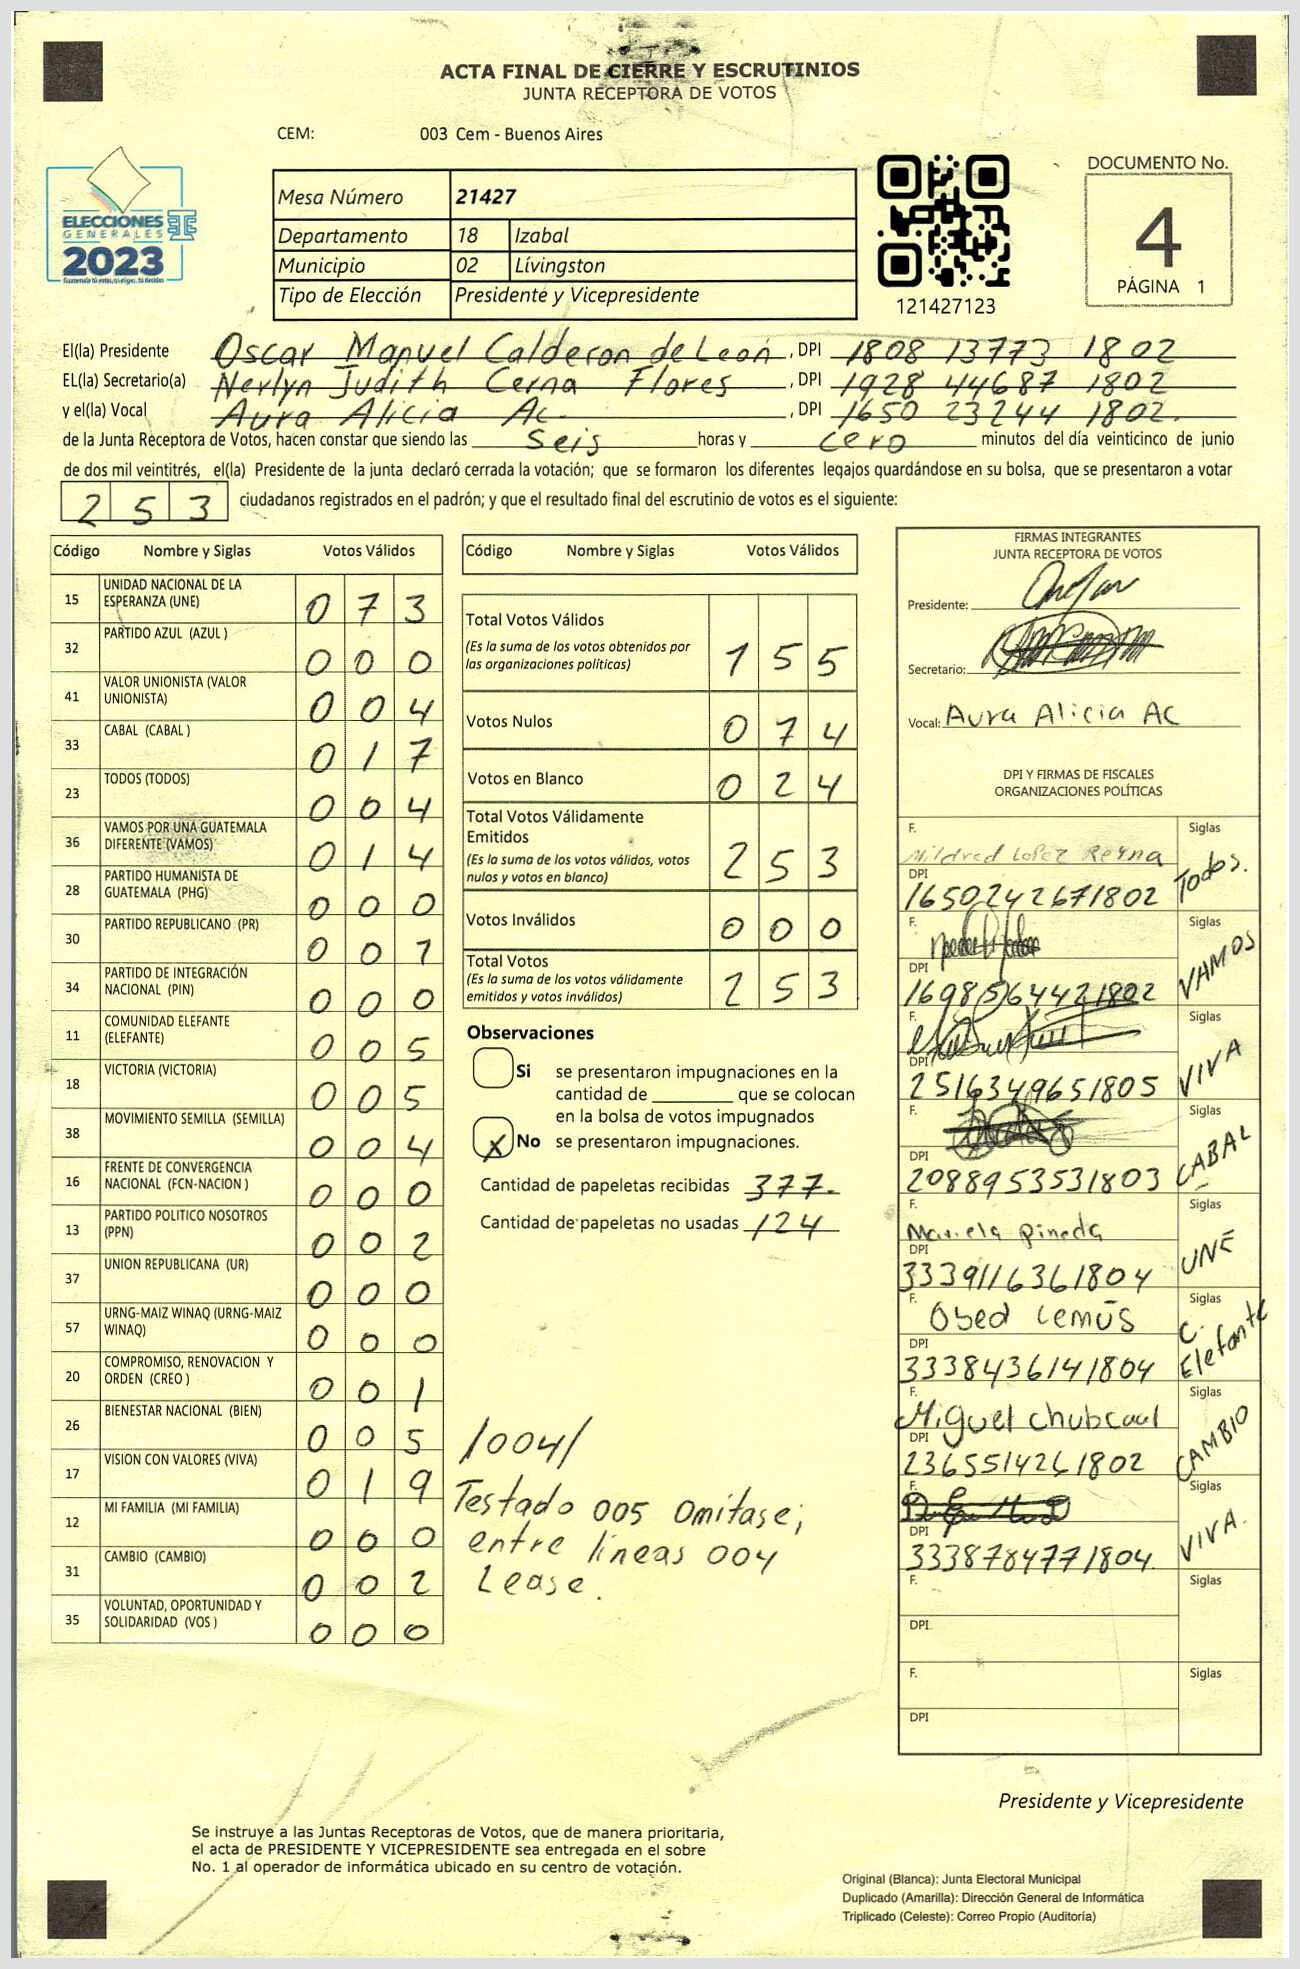 ACTA FINAL DE CIERRE Y ESCRUTINIOS
JUNTA RECEPTORA DE VOTOS
CEM: 003 Cem - Buenos Aires
ELECCIONES
GENERALES
2023
Mesa Número 21427
Departamento 18 Izabal
Municipio 02 Lívingston
Tipo de Elección Presidente y Vicepresidente
121427123
DOCUMENTO No.
4
PÁGINA 1
El(la) Presidente Oscar Manuel Calderon de Leon, DPI 1808 13773 1802
EL(la) Secretario(a) Nerlyn Judith Cerna Flores, DPI 1928 44687 1802
y el(la) Vocal Aura Alicia Ac, DPI 1650 23244 1802.
de la Junta Receptora de Votos, hacen constar que siendo las seis horas y cero minutos del día veinticinco de junio
de dos mil veintitrés, el(la) Presidente de la junta declaró cerrada la votación; que se formaron los diferentes legajos quardándose en su bolsa, que se presentaron a votar
253 ciudadanos registrados en el padrón; y que el resultado final del escrutinio de votos es el siguiente:
Código Nombre y Siglas Votos Válidos
15 UNIDAD NACIONAL DE LA ESPERANZA (UNE) 073
32 PARTIDO AZUL (AZUL ) 000
41 VALOR UNIONISTA (VALOR UNIONISTA) 004
33 CABAL (CABAL ) 017
23 TODOS (TODOS) 004
36 VAMOS POR UNA GUATEMALA DIFERENTE (VAMOS) 014
28 PARTIDO HUMANISTA DE GUATEMALA (PHG) 000
30 PARTIDO REPUBLICANO (PR) 001
34 PARTIDO DE INTEGRACIÓN NACIONAL (PIN) 000
11 COMUNIDAD ELEFANTE (ELEFANTE) 005
18 VICTORIA (VICTORIA) 005
38 MOVIMIENTO SEMILLA (SEMILLA) 004
16 FRENTE DE CONVERGENCIA NACIONAL (FCN-NACION ) 000
13 PARTIDO POLITICO NOSOTROS (PPN) 002
37 UNION REPUBLICANA (UR) 000
57 URNG-MAIZ WINAQ (URNG-MAIZ WINAQ) 000
20 COMPROMISO, RENOVACION Y ORDEN (CREO ) 001
26 BIENESTAR NACIONAL (BIEN) 005
17 VISION CON VALORES (VIVA) 019
12 MI FAMILIA (MI FAMILIA) 000
31 CAMBIO (CAMBIO) 002
35 VOLUNTAD, OPORTUNIDAD Y SOLIDARIDAD (VOS ) 000
Código Nombre y Siglas Votos Válidos
Total Votos Válidos 155
(Es la suma de los votos obtenidos por
las organizaciones políticas)
Votos Nulos 074
Votos en Blanco 024
Total Votos Válidamente
Emitidos 253
(Es la suma de los votos válidos, votos
nulos y votos en blanco)
Votos Inválidos 000
Total Votos 253
(Es la suma de los votos válidamente
emitidos y votos inválidos)
Observaciones
Si se presentaron impugnaciones en la
cantidad de que se colocan
en la bolsa de votos impugnados
X No se presentaron impugnaciones.
Cantidad de papeletas recibidas 377.
Cantidad de papeletas no usadas 124
/004/
Testado 005 Omitase;
entre líneas 004
Lease.
FIRMAS INTEGRANTES
JUNTA RECEPTORA DE VOTOS
Presidente:
Secretario:
Vocal: Aura Alicia AC
DPI Y FIRMAS DE FISCALES
ORGANIZACIONES POLÍTICAS
F. Mildred Lopez Reyna Siglas Todos.
DPI 1650242671802
F. Siglas VAMOS
DPI 1698564421802
F. Siglas VIVA
DPI 2516349651805
F. Siglas CABAL
DPI 2088953531803
F. Mariela Pineda Siglas UNE
DPI 3339116361804
F. Obed Lemus Siglas C. Elefante
DPI 3338436141804
F. Miguel Siglas CAMBIO
DPI 2365514261802
F. Siglas VIVA.
DPI 3338784771804.
F. Siglas
DPI
F. Siglas
DPI
Presidente y Vicepresidente
Se instruye a las Juntas Receptoras de Votos, que de manera prioritaria,
el acta de PRESIDENTE Y VICEPRESIDENTE sea entregada en el sobre
No. 1 al operador de informática ubicado en su centro de votación.
Original (Blanca): Junta Electoral Municipal
Duplicado (Amarilla): Dirección General de Informática
Triplicado (Celeste): Correo Propio (Auditoría)